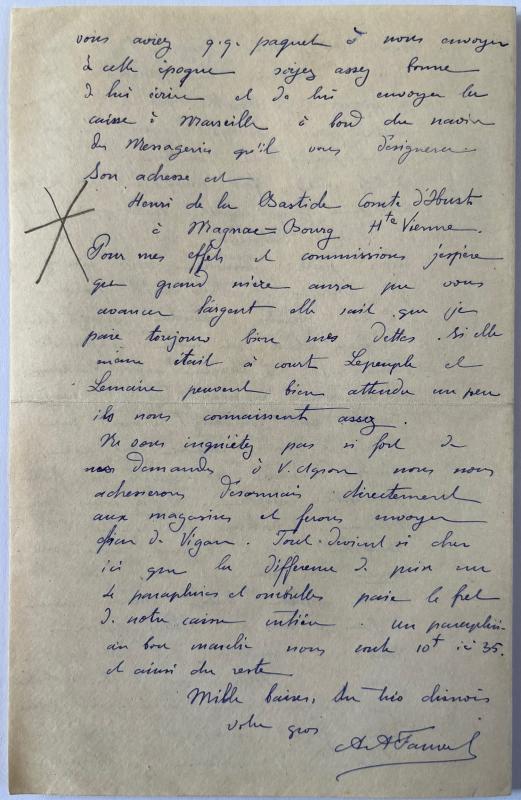 vous aviez q.q. paquet à nous envoyer
à cette époque soyez assez bonne
de lui écrire et de lui envoyer la
caisse à Marseille à bord du navire
des Messageries qu'il vous désignera
Son adresse est
Henri de la Bastide Comte d'Hust
à Magnac=Bourg Hte Vienne.
Pour mes effets et commissions j'espère
que grand mère aura pu vous
avancer l'argent elle sait que je
paie toujours bien mes dettes. Si elle
même était à court Lepeuple et
Lemaire peuvent bien attendre un peu
ils nous connaissent assez.
Ne vous inquiétez pas si fort de
nos demandes à V. nous nous
adresserons désormais directement
aux magasins et ferons envoyer
de Vigan. Tout devient si cher
ici que la différence de prix sur
4 parapluies et ombrelles paie le fret
de notre caisse entière. un parapluie
au bon marché nous coute 10f ici 35.
et ainsi du reste
Mille baisers, du trio chinois
votre gros